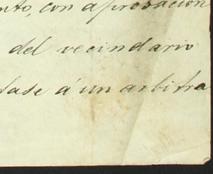 nto, con aprobacion
del vecindario
tase á un arbitra